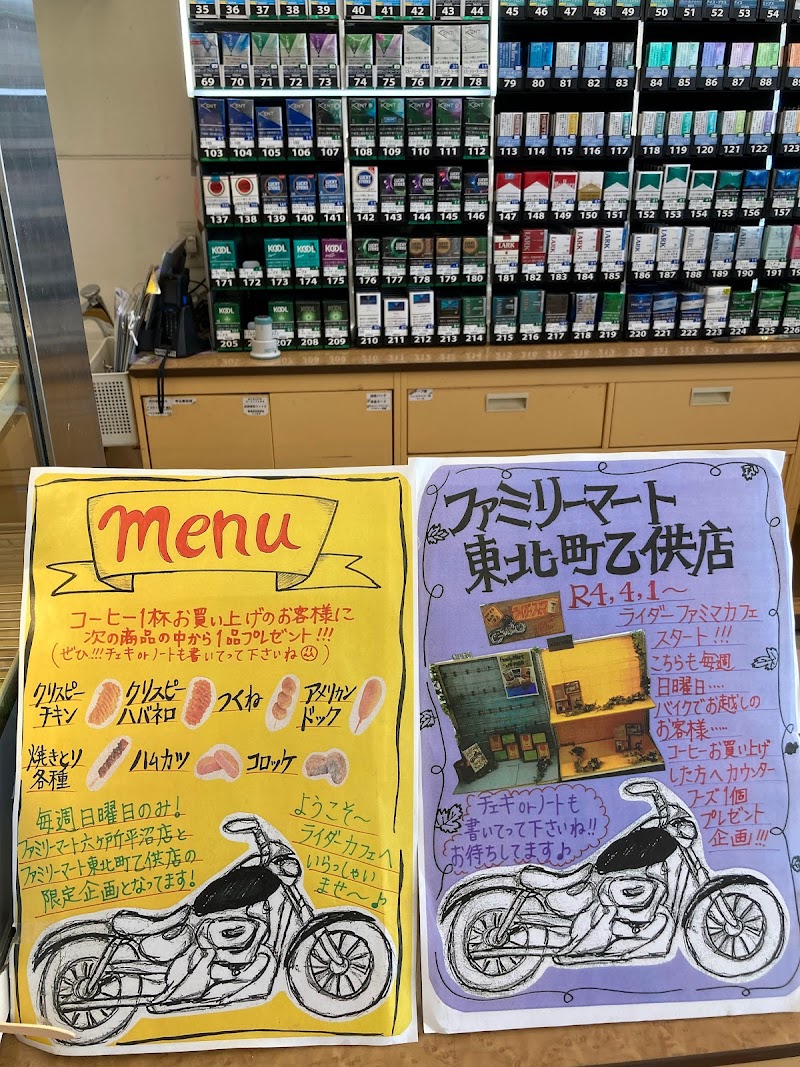 35 36 37 38 39 40 41 42 43 44
45 46 47 48 49 50 51 52 53 54
69 70 71 72 73 74 75 76 77 78
79 80 81 82 83 84 85 86 87 88
KENT
103 104 105 106 107 108 109 110 111 112
113 114 115 116 117 118 119 120 121 122 123
LUCKY STRIKE
Marlboro
137 138 139 140 141 142 143 144 145 146
147 148 149 150 151 152 153 154 155 156 157
KOOL KOOL KOOL KOOL
LARK LARK LARK LARK LARK
171 172 173 174 175 176 177 178 179 180
181 182 183 184 185 186 187 188 189 190 191
KOOL
205 207 208 209 210 211 212 213 214
215 216 217 218 219 220 221 222 223 224 225 226
menu
コーヒー1杯お買い上げのお客様に
次の商品の中から1品プレゼント!!!
(ぜひ!!!チェキorノートも書いてって下さいね)
クリスピーチキン
クリスピーハバネロ
つくね
アメリカンドック
焼きとり各種
ハムカツ
コロッケ
毎週日曜日のみ!
ファミリーマート六ヶ所平沼店と
ファミリーマート東北町乙供店の
限定企画となってます!
ようこそ〜
ライダーカフェへ
いらっしゃい
ませ〜♪
ファミリーマート
東北町乙供店
R4,4,1〜
ライダーファミマカフェ
スタート!!!
こちらも毎週
日曜日....
バイクでお越しの
お客様.....
コーヒーお買い上げ
した方へカウンター
フーズ1個
プレゼント
企画!!!
チェキorノートも
書いてって下さいね!!
お待ちしてます♪